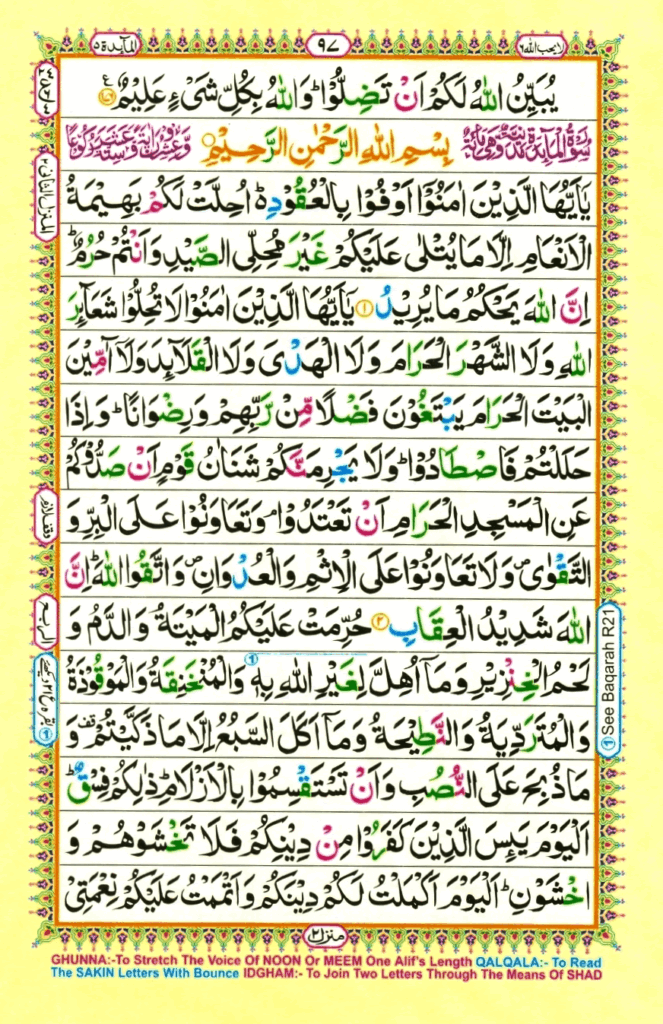 لا يحب الله ٦
٩٧
المآئدة ٥
يُبَيِّنُ اللّٰهُ لَكُمْ اَنْ تَضِلُّوْا ؕ وَاللّٰهُ بِكُلِّ شَىْءٍ عَلِيْمٌ ﴿۱۷۶﴾
بِسْمِ اللّٰهِ الرَّحْمٰنِ الرَّحِيْمِ
يٰۤاَيُّهَا الَّذِيْنَ اٰمَنُوْۤا اَوْفُوْا بِالْعُقُوْدِ ؕ اُحِلَّتْ لَكُمْ بَهِيْمَةُ
الْاَنْعَامِ اِلَّا مَا يُتْلٰى عَلَيْكُمْ غَيْرَ مُحِلِّى الصَّيْدِ وَاَنْتُمْ حُرُمٌ ؕ
اِنَّ اللّٰهَ يَحْكُمُ مَا يُرِيْدُ ﴿۱﴾ يٰۤاَيُّهَا الَّذِيْنَ اٰمَنُوْا لَا تُحِلُّوْا شَعَآئِرَ
اللّٰهِ وَلَا الشَّهْرَ الْحَرَامَ وَلَا الْهَدْىَ وَلَا الْقَلَآئِدَ وَلَاۤ آٰمِّيْنَ
الْبَيْتَ الْحَرَامَ يَبْتَغُوْنَ فَضْلًا مِّنْ رَّبِّهِمْ وَرِضْوَانًا ؕ وَاِذَا
حَلَلْتُمْ فَاصْطَادُوْا ؕ وَلَا يَجْرِمَنَّكُمْ شَنَاٰنُ قَوْمٍ اَنْ صَدُّوْكُمْ
عَنِ الْمَسْجِدِ الْحَرَامِ اَنْ تَعْتَدُوْا ۘ وَتَعَاوَنُوْا عَلَى الْبِرِّ وَ
التَّقْوٰى ۪ وَلَا تَعَاوَنُوْا عَلَى الْاِثْمِ وَالْعُدْوَانِ ۪ وَاتَّقُوا اللّٰهَ ؕ اِنَّ
اللّٰهَ شَدِيْدُ الْعِقَابِ ﴿۲﴾ حُرِّمَتْ عَلَيْكُمُ الْمَيْتَةُ وَالدَّمُ وَ
لَحْمُ الْخِنْزِيْرِ وَمَاۤ اُهِلَّ لِغَيْرِ اللّٰهِ بِهٖ ① وَالْمُنْخَنِقَةُ وَالْمَوْقُوْذَةُ
وَالْمُتَرَدِّيَةُ وَالنَّطِيْحَةُ وَمَاۤ اَكَلَ السَّبُعُ اِلَّا مَا ذَكَّيْتُمْ ۟ وَ
مَا ذُبِحَ عَلَى النُّصُبِ وَاَنْ تَسْتَقْسِمُوْا بِالْاَزْلَامِ ؕ ذٰلِكُمْ فِسْقٌ ؕ
اَلْيَوْمَ يَئِسَ الَّذِيْنَ كَفَرُوْا مِنْ دِيْنِكُمْ فَلَا تَخْشَوْهُمْ وَ
اخْشَوْنِ ؕ اَلْيَوْمَ اَكْمَلْتُ لَكُمْ دِيْنَكُمْ وَاَتْمَمْتُ عَلَيْكُمْ نِعْمَتِىْ
المنزل الثانى ٢
وقف لازم
الربع
① See Baqarah R21
منزل ٢
GHUNNA:-To Stretch The Voice Of NOON Or MEEM One Alif's Length QALQALA:- To Read
The SAKIN Letters With Bounce IDGHAM:- To Join Two Letters Through The Means Of SHAD